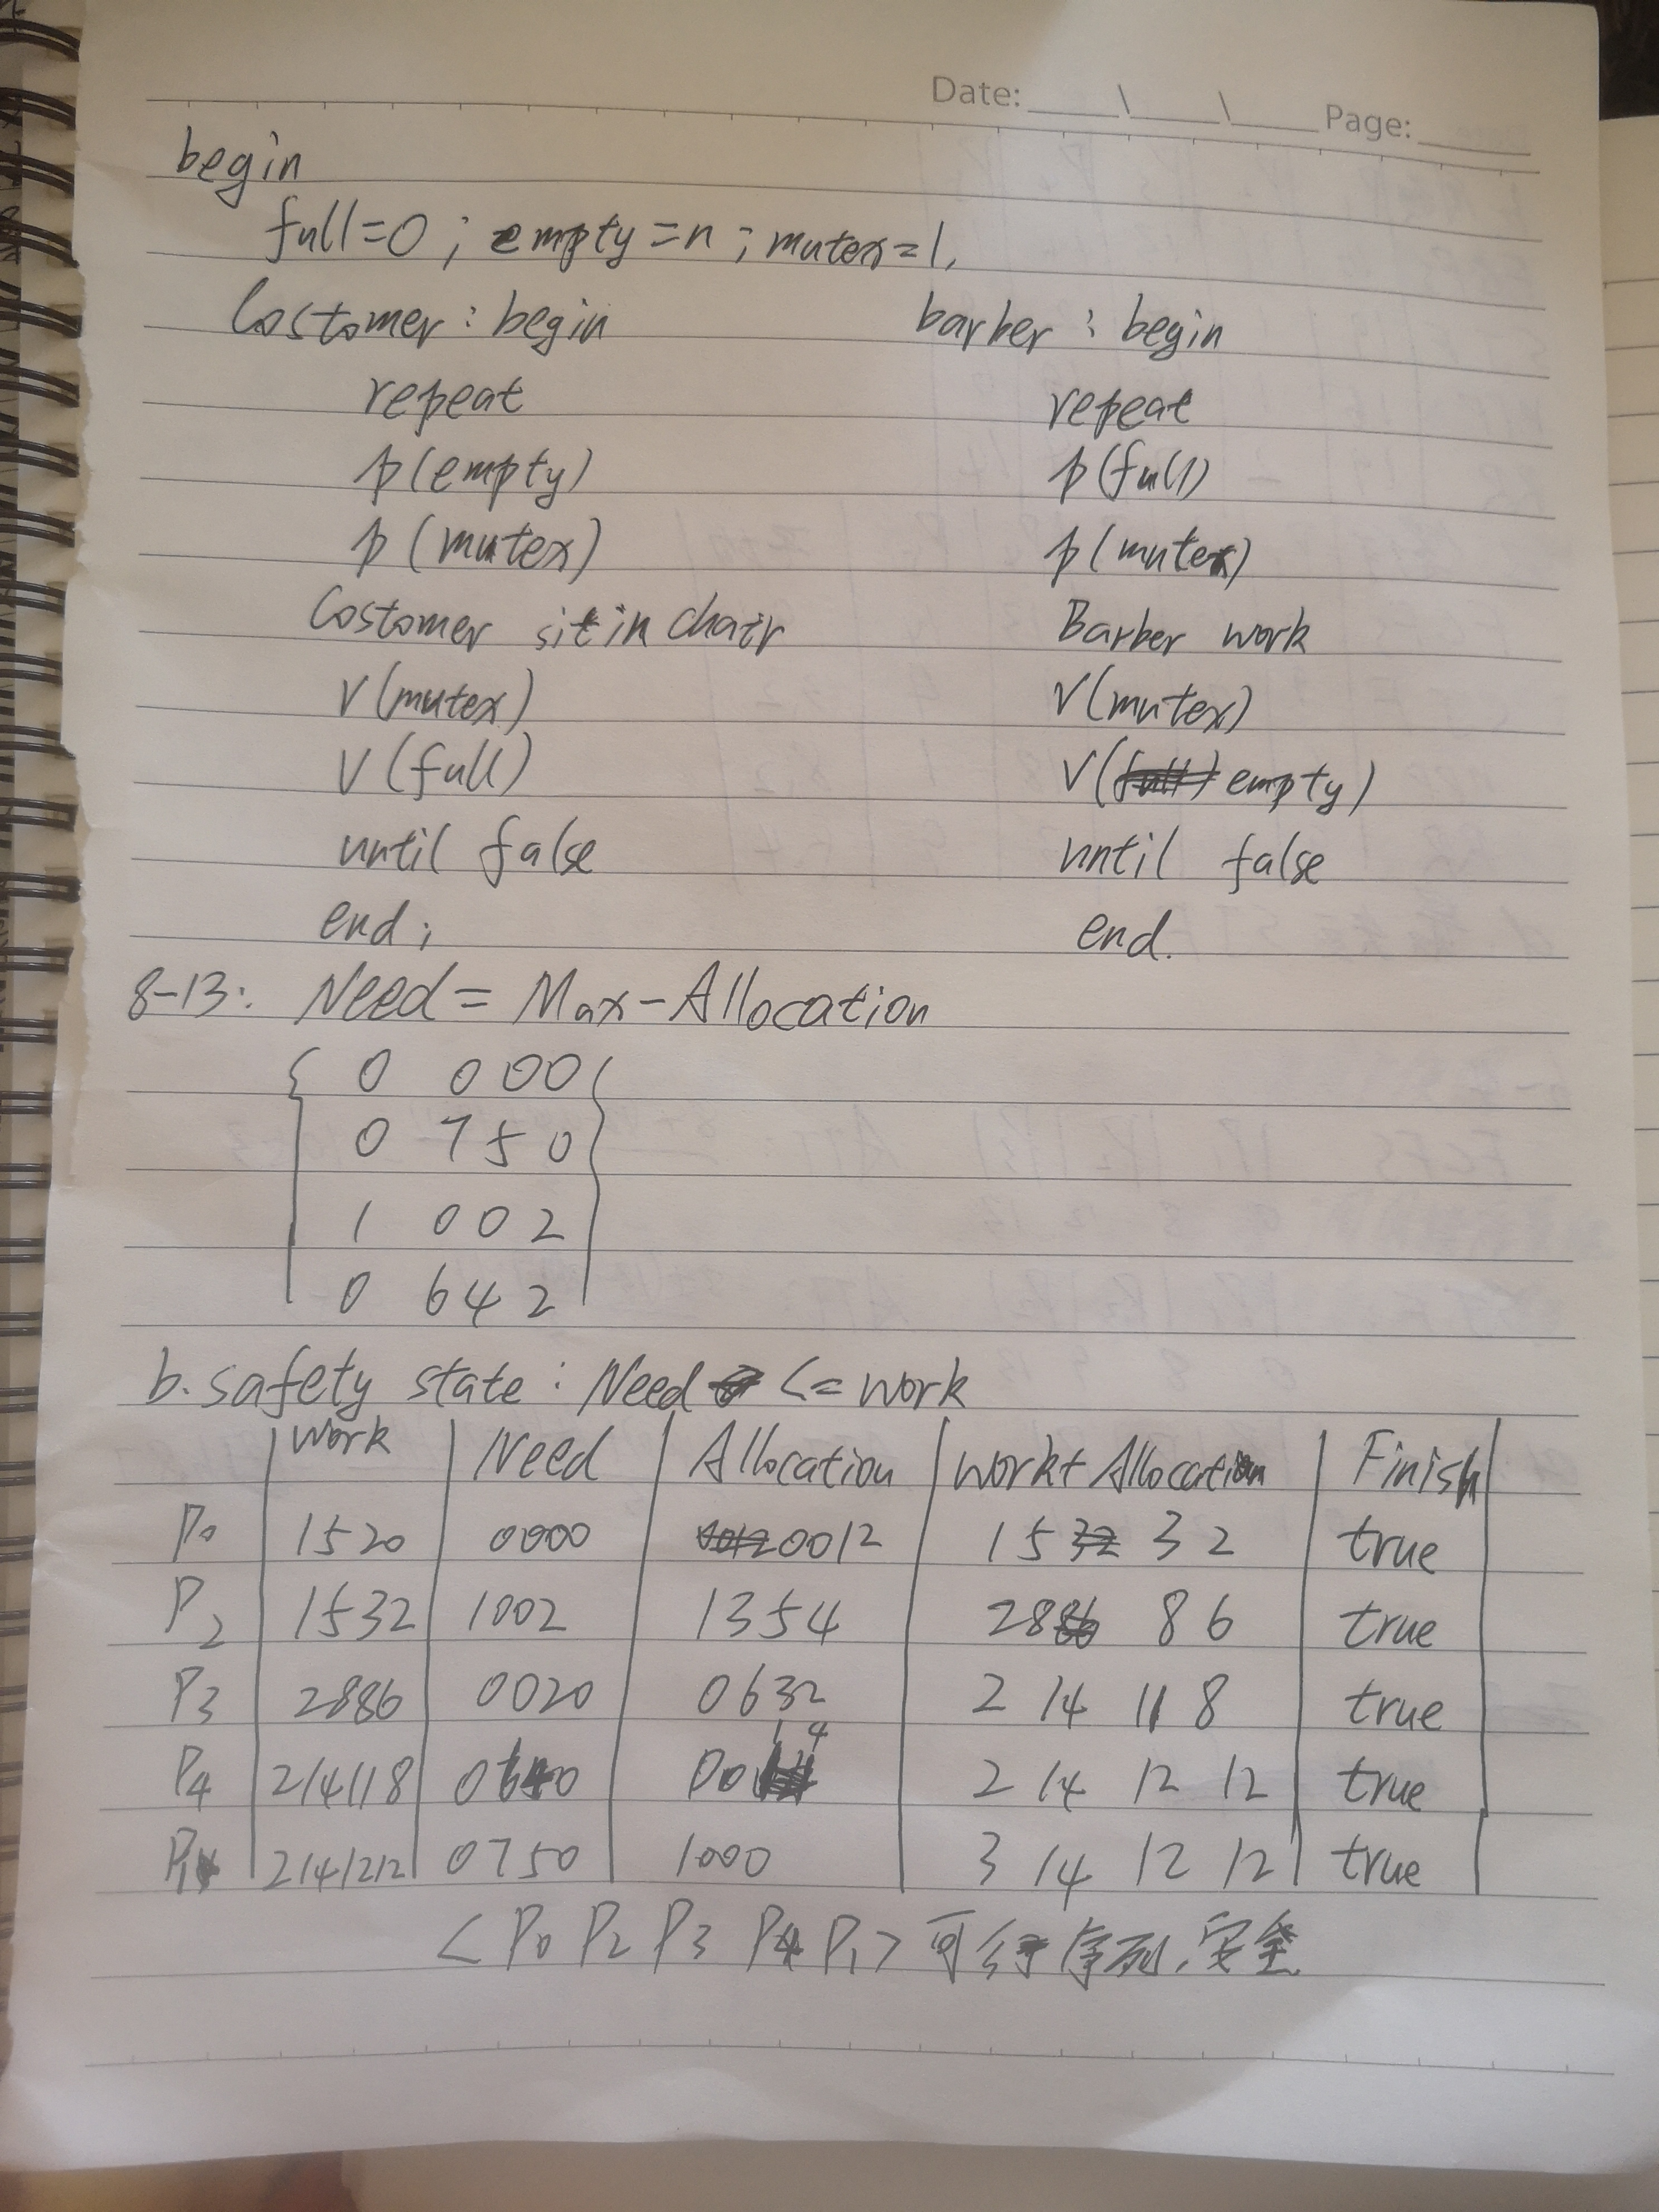 Date: \ \ Page:
begin
full=0 ; empty=n ; mutex=1,
Costomer : begin
repeat
p(empty)
p(mutex)
Costomer sit in chair
V(mutex)
V(full)
until false
end;
barber : begin
repeat
p(full)
p(mutex)
Barber work
V(mutex)
V(empty)
until false
end.
8-13: Need = Max-Allocation
0 0 0 0
0 7 5 0
1 0 0 2
0 6 4 2
b. safety state : Need <= work
Work Need Allocation work+Allocation Finish
P0 1520 0000 0012 15 3 2 true
P2 1532 1002 1354 28 8 6 true
P3 2886 0020 0632 2 14 11 8 true
P4 214118 0640 0014 2 14 12 12 true
P1 2141212 0750 1000 3 14 12 12 true
<P0 P2 P3 P4 P1> 可行序列,安全